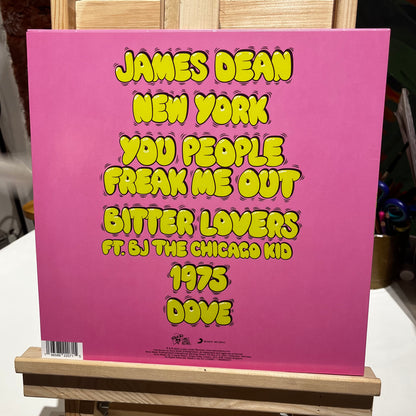 JAMES DEAN
NEW YORK
YOU PEOPLE
FREAK ME OUT
BITTER LOVERS
FT. BJ THE CHICAGO KID
1975
DOVE